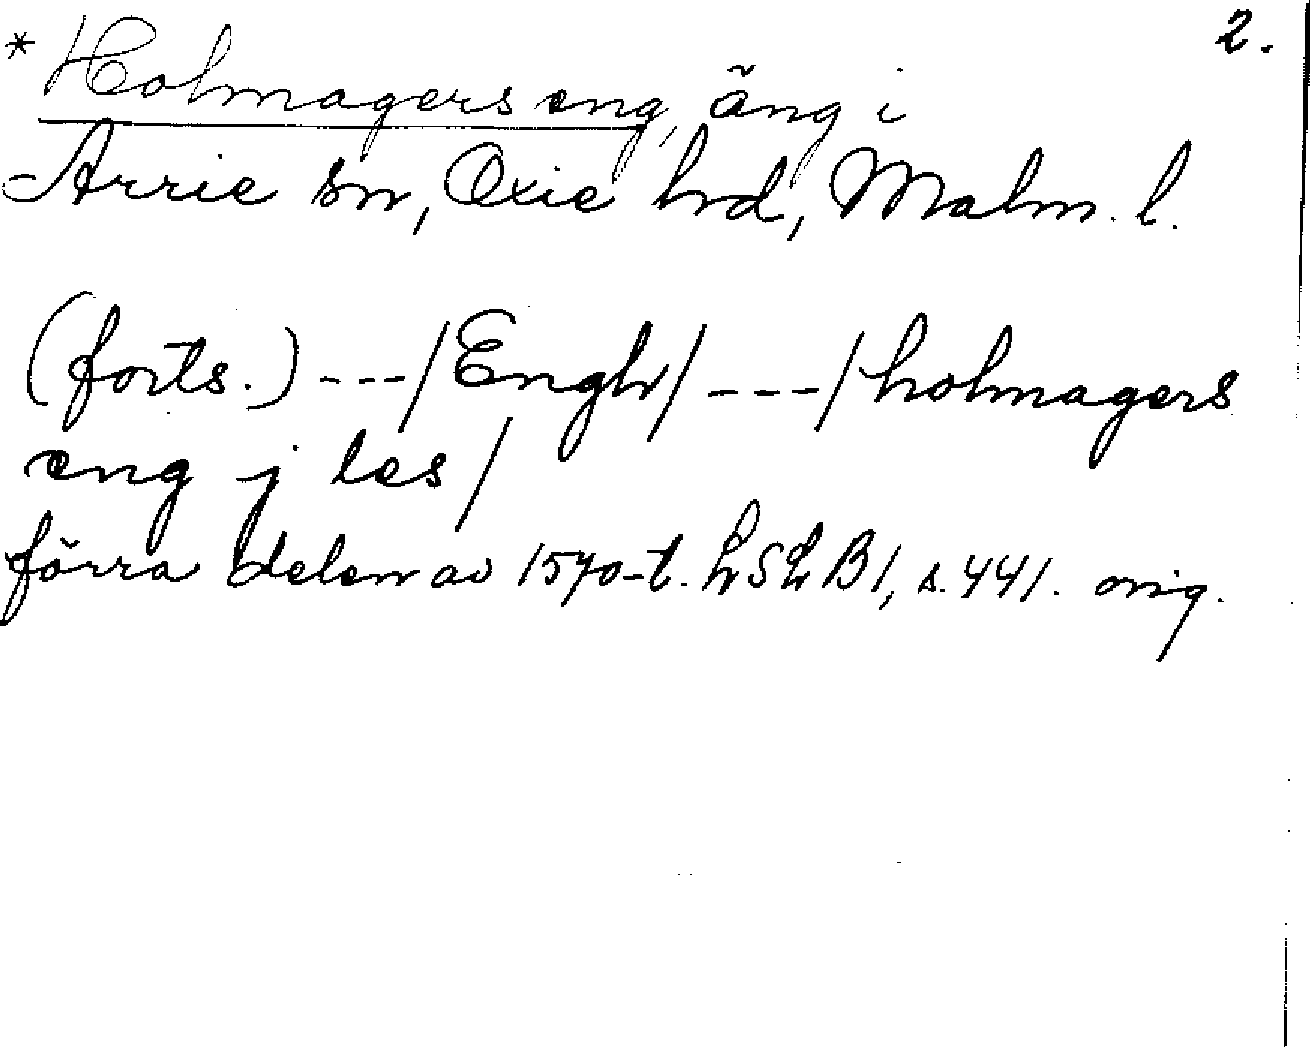 2.
* Holmagers eng, äng i
Arrie sn, Oxie hd, Malm. l.
(forts.) ---/Engh/ ---/holmagers
eng j les/
förra delen av 1570-t. LSLB1, s. 441. orig.